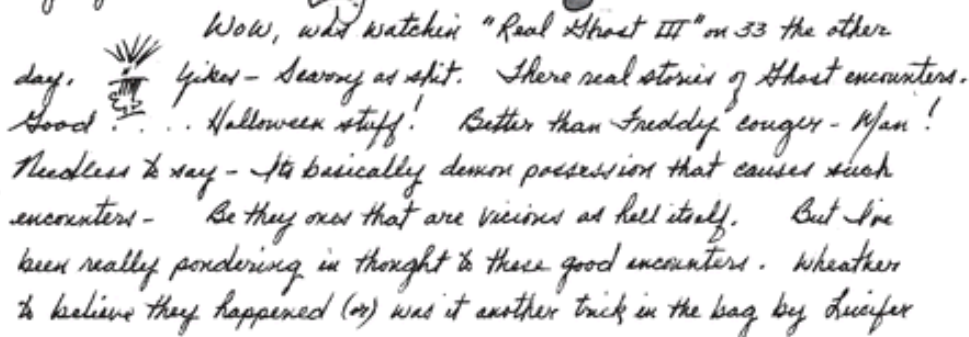 Wow, was watchin "Real Ghost III" on 33 the other
day. Yikes - Scarry as shit. There real stories of Ghost encounters.
Good . . . . Halloween stuff! Better than Freddy couger - Man!
Needless to say - Its basically demon possession that causes such
encounters - Be they ones that are vicious as hell itself. But I've
been really pondering in thought to these good encounters. Wheather
to believe they happened (or) was it another trick in the bag by Lucifer